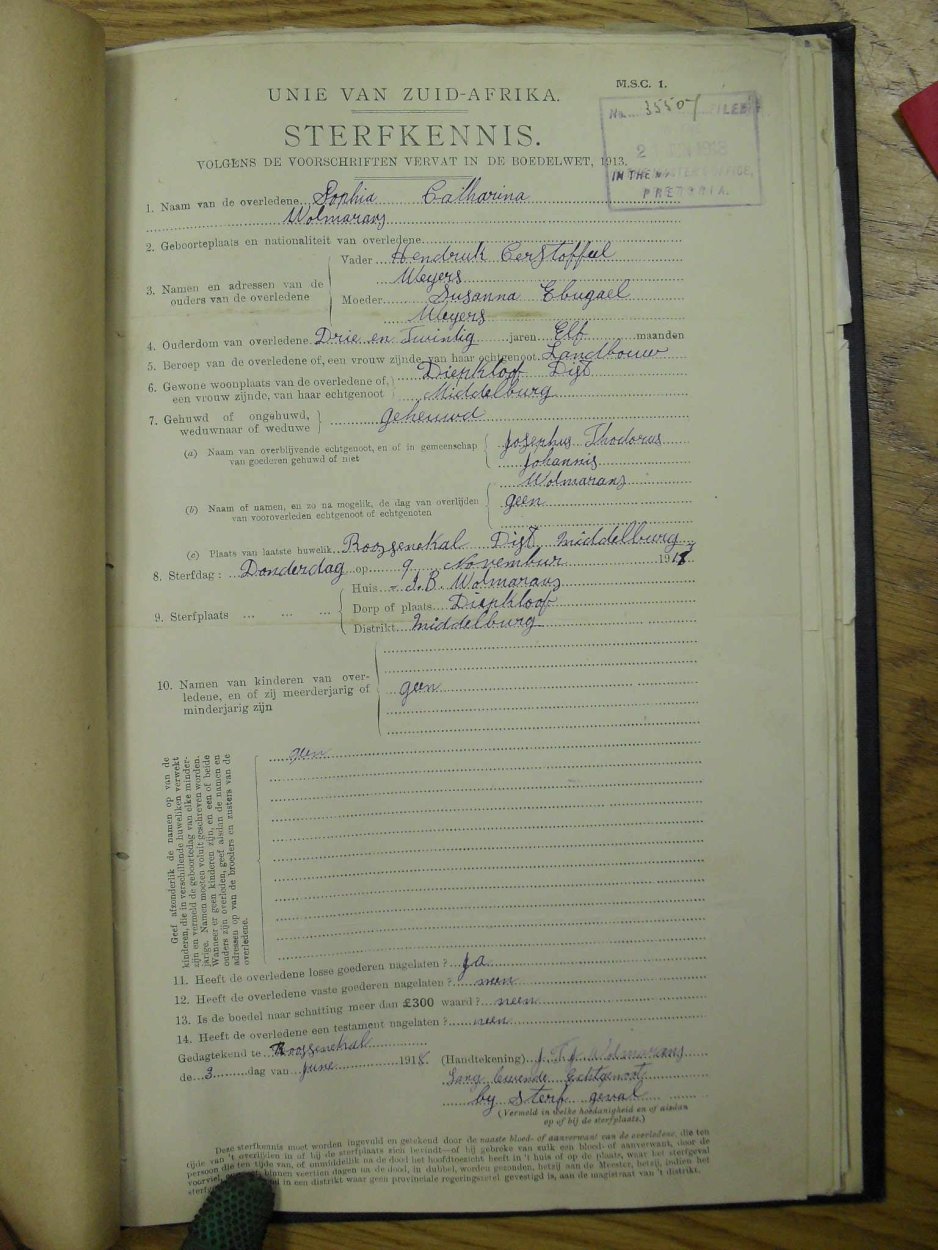 M.S.C. 1.
UNIE VAN ZUID-AFRIKA.
No. 3550 FILED
1918
IN THE MASTER'S OFFICE,
PRETORIA.
STERFKENNIS.
VOLGENS DE VOORSCHRIFTEN VERVAT IN DE BOEDELWET, 1913.
1. Naam van de overledene Sophia Catharina
Wolmarans
2. Geboorteplaats en nationaliteit van overledene
3. Namen en adressen van de ouders van de overledene
Vader Hendruk Cerstoffeel
Weyers
Moeder Susanna Ebugael
Weyers
4. Ouderdom van overledene Drie en Twintig jaren Elf maanden
5. Beroep van de overledene of, een vrouw zijnde, van haar echtgenoot Landbouw
6. Gewone woonplaats van de overledene of, een vrouw zijnde, van haar echtgenoot
Diepkloof Dist
Middelburg
7. Gehuwd of ongehuwd, weduwnaar of weduwe geheuwd
(a) Naam van overblijvende echtgenoot, en of in gemeenschap van goederen gehuwd of niet
Josephus Thodorus
Johannis
Wolmarans
(b) Naam of namen, en zo na mogelik, de dag van overlijden van vooroverleden echtgenoot of echtgenoten
geen
(c) Plaats van laatste huwelik Roossenekal Dist Middelburg
8. Sterfdag: Donderdag op 9 Novembur 191
9. Sterfplaats ... ... ...
Huis - J.B. Wolmarans
Dorp of plaats Diepkloof
Distrikt Middelburg
10. Namen van kinderen van overledene, en of zij meerderjarig of minderjarig zijn
geen
Geef afzonderlik de namen op van de kinderen, die in verschillende huweliken verwekt zijn en vermeld de geboortedag van elke minderjarige. Namen moeten voluit geschreven worden. Wanneer er geen kinderen zijn, en een of beide ouders zijn overleden, geef alsdan de namen en adressen op van de broeders en zusters van de overledene.
geen
11. Heeft de overledene losse goederen nagelaten? Ja
12. Heeft de overledene vaste goederen nagelaten? neen
13. Is de boedel naar schatting meer dan £300 waard? neen
14. Heeft de overledene een testament nagelaten? neen
Gedagtekend te Roossenekal
de 3 dag van June 1918 (Handtekening) J. T. J. Wolmarans
Lang lewende Echtgenoot
by sterf geval
(Vermeld in welke hoedanigheid en of aldan
op of bij de sterfplaats.)
Deze sterfkennis moet worden ingevuld en getekend door de naaste bloed- of aanverwant van de overledene, die ten
tijde van 't overlijden in of bij de sterfplaats zich bevindt—of bij gebreke van zulk een bloed- of aanverwant, door de
persoon die ten tijde van, of onmiddellik na de dood het hoofdtoezicht heeft in 't huis of op de plaats, waar het sterfgeval
voorviel, binnen veertien dagen na de dood, in dubbel, worden gezonden, hetzij aan de Meester, hetzij, indien het
sterfgeval in een distrikt waar geen provinciale regeringszetel gevestigd is, aan de magistraat van 't distrikt.